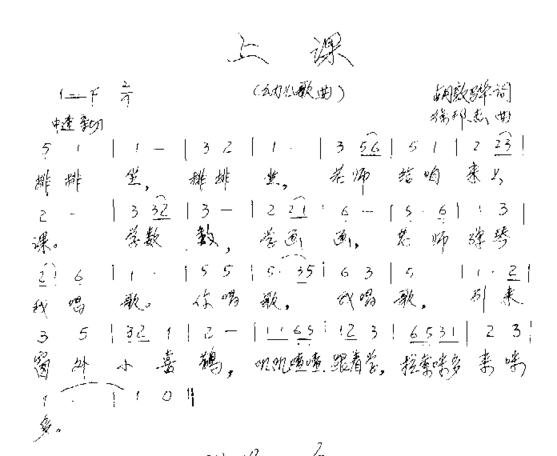 上 课
(幼儿歌曲)
1=F 2/4
胡敦骅 词
中速 亲切
徐邦杰 曲
5 1 | 1 - | 3 2 | 1 · | 3 56 | 5 1 | 2 23 |
排排 坐, 排排 坐, 老师 给咱 来上
2 - | 3 32 | 3 - | 2 21 | 6 - | 5 · 6 | 1 · 3 |
课。 学数 数, 学画 画, 老 师 弹琴
2 6 | 1 · | 5 5 | 5 · 35 | 6 3 | 5 | 1 · 2 |
我 唱 歌。 你唱 歌, 我唱 歌, 引来
3 5 | 32 1 | 2 - | 1165 | 12 3 | 6531 | 2 3 |
窗 外 小 喜 鹊, 叽叽喳喳 跟着学, 拉索咪多 来 咪
1 · | 1 0 ‖
多。